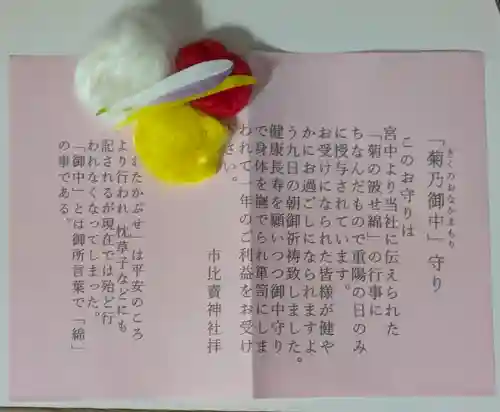 きくのおなかまもり
「菊乃御中」守り
このお守りは
宮中より当社に伝えられた
「菊の被せ綿」の行事に
ちなんだもので重陽の日のみ
に授与されています。
お受けになられた皆様が健や
かにお過ごしになられますよ
う九日の朝御祈祷致しました。
健康長寿を願いつつ御中守り
で身体を撫でられ箪笥にしま
われて一年のご利益をお受け
さい。
市比賣神社拝
わたかぶせ」は平安のころ
より行われ、枕草子などにも
記されるが現在では殆ど行
われなくなってしまった。
「御中」とは御所言葉で「綿」
の事である。